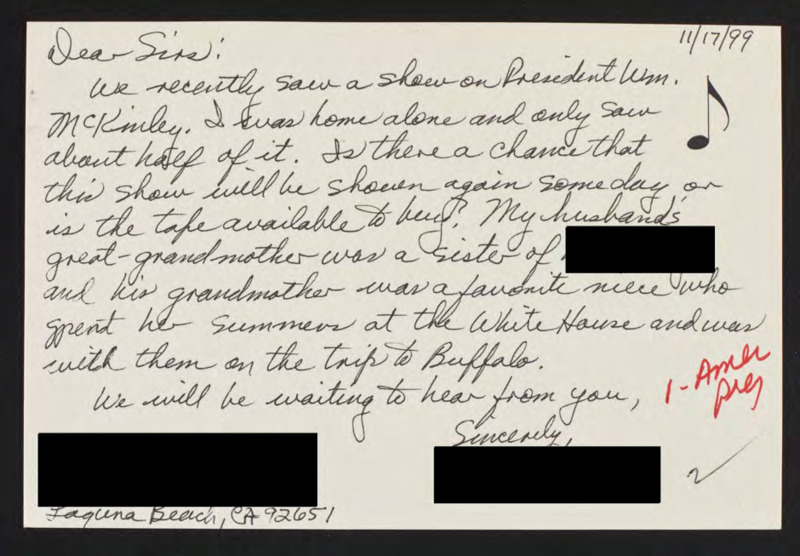 11/17/99
Dear Sirs:
We recently saw a show on President Wm.
McKinley. I was home alone and only saw
about half of it. Is there a chance that
this show will be shown again someday, or
is the tape available to buy? My husband's
great-grandmother was a sister of
and his grandmother was a favorite niece who
spent her summers at the White House and was
with them on the trip to Buffalo.
We will be waiting to hear from you,
1- Amer
Pres
Sincerely,
2
Laguna Beach, CA 92651